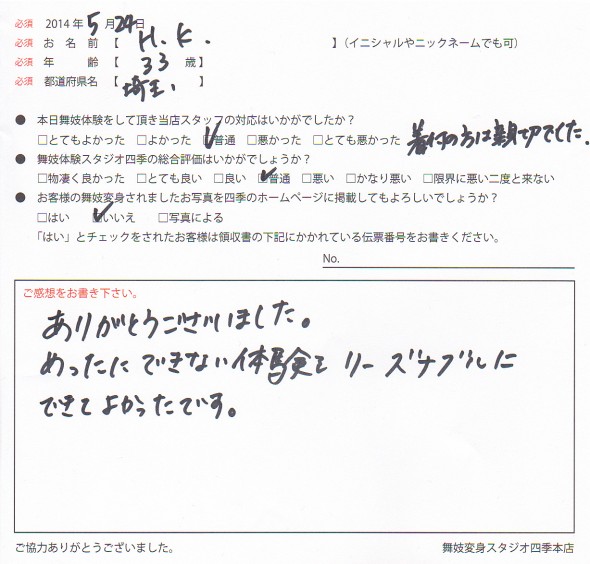 必須 2014年5月24日
必須 お名前【 H.K. 】(イニシャルやニックネームでも可)
必須 年齢【 33 歳】
必須 都道府県名【 埼玉 】
● 本日舞妓体験をして頂き当店スタッフの対応はいかがでしたか?
□とてもよかった □よかった ☑普通 □悪かった □とても悪かった 着付の方は親切でした。
● 舞妓体験スタジオ四季の総合評価はいかがでしょうか?
□物凄く良かった □とても良い □良い ☑普通 □悪い □かなり悪い □限界に悪い二度と来ない
● お客様の舞妓変身されましたお写真を四季のホームページに掲載してもよろしいでしょうか?
□はい ☑いいえ □写真による
「はい」とチェックをされたお客様は領収書の下記にかかれている伝票番号をお書きください。
No.
ご感想をお書き下さい。
ありがとうございました。
めったにできない体験をリーズナブルに
できてよかったです。
ご協力ありがとうございました。
舞妓変身スタジオ四季本店